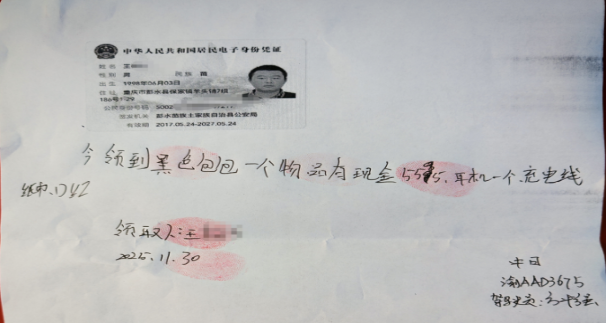 中华人民共和国居民电子身份凭证
姓名 王
性别 男 民族 苗
出生 1998年06月03日
住址 重庆市彭水县保家镇羊头铺7组
186号1-29
公民身份号码 5002
签发机关 彭水苗族土家族自治县公安局
有效期 2017.05.24-2027.05.24
今领到黑色包包一个物品有现金5595、耳机一个充电线
纸巾、
领取人:王
2025.11.30
渝AAD3675
驾驶员: